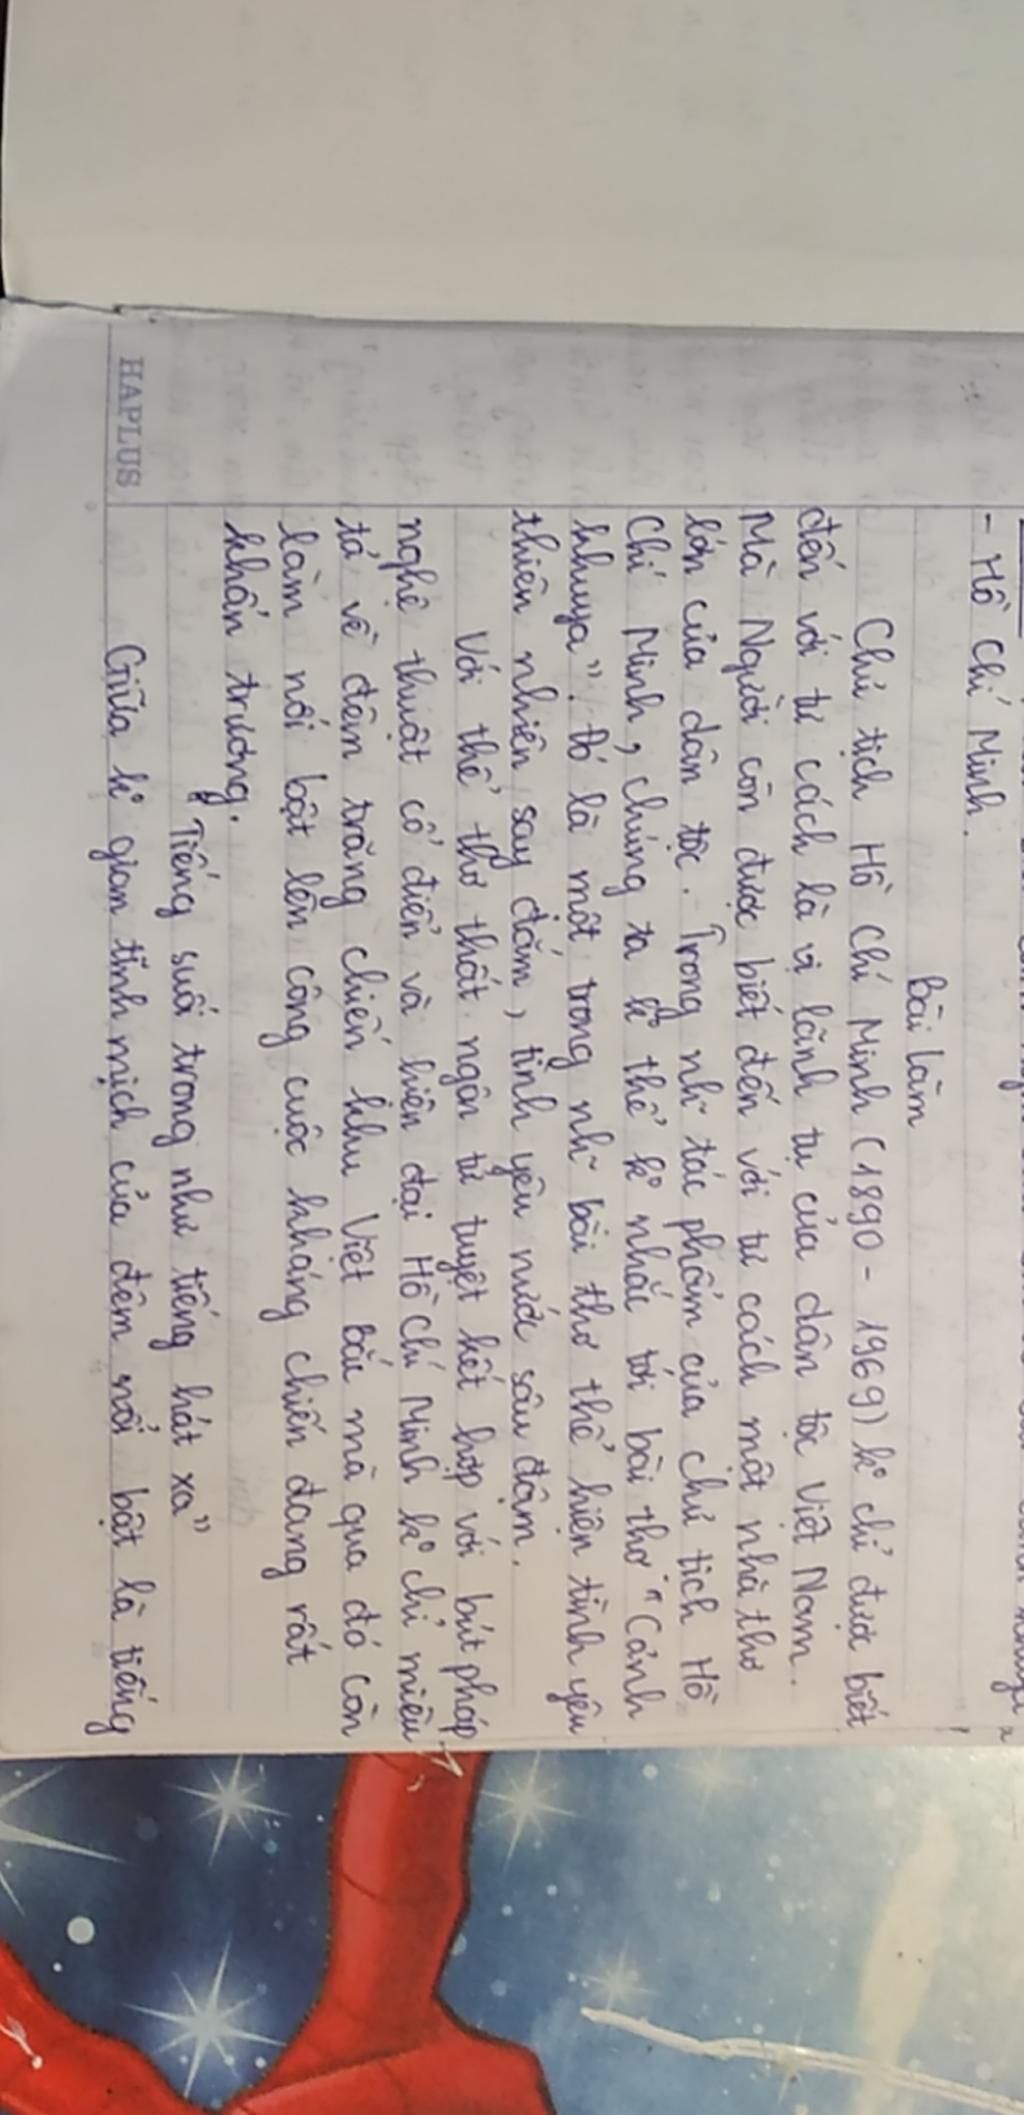 - Hồ Chí Minh.
Bài làm
Chủ tịch Hồ Chí Minh (1890 - 1969) ko chỉ được biết
đến với tư cách là vị lãnh tụ của dân tộc Việt Nam.
Mà Người còn được biết đến với tư cách một nhà thơ
lớn của dân tộc. Trong nh~ tác phẩm của chủ tịch Hồ
Chí Minh, chúng ta ko thể ko nhắc tới bài thơ "Cảnh
khuya". Đó là một trong nh~ bài thơ thể hiện tình yêu
thiên nhiên say đắm, tình yêu nước sâu đậm.
Với thể thơ thất ngôn tứ tuyệt kết hợp với bút pháp
nghệ thuật cổ điển và hiện đại Hồ Chí Minh ko chỉ miêu
tả về đêm trăng chiến khu Việt Bắc mà qua đó còn
làm nổi bật lên công cuộc kháng chiến đang rất
khẩn trương.
"Tiếng suối trong như tiếng hát xa"
Giữa ko gian tĩnh mịch của đêm nổi bật là tiếng
HAPLUS